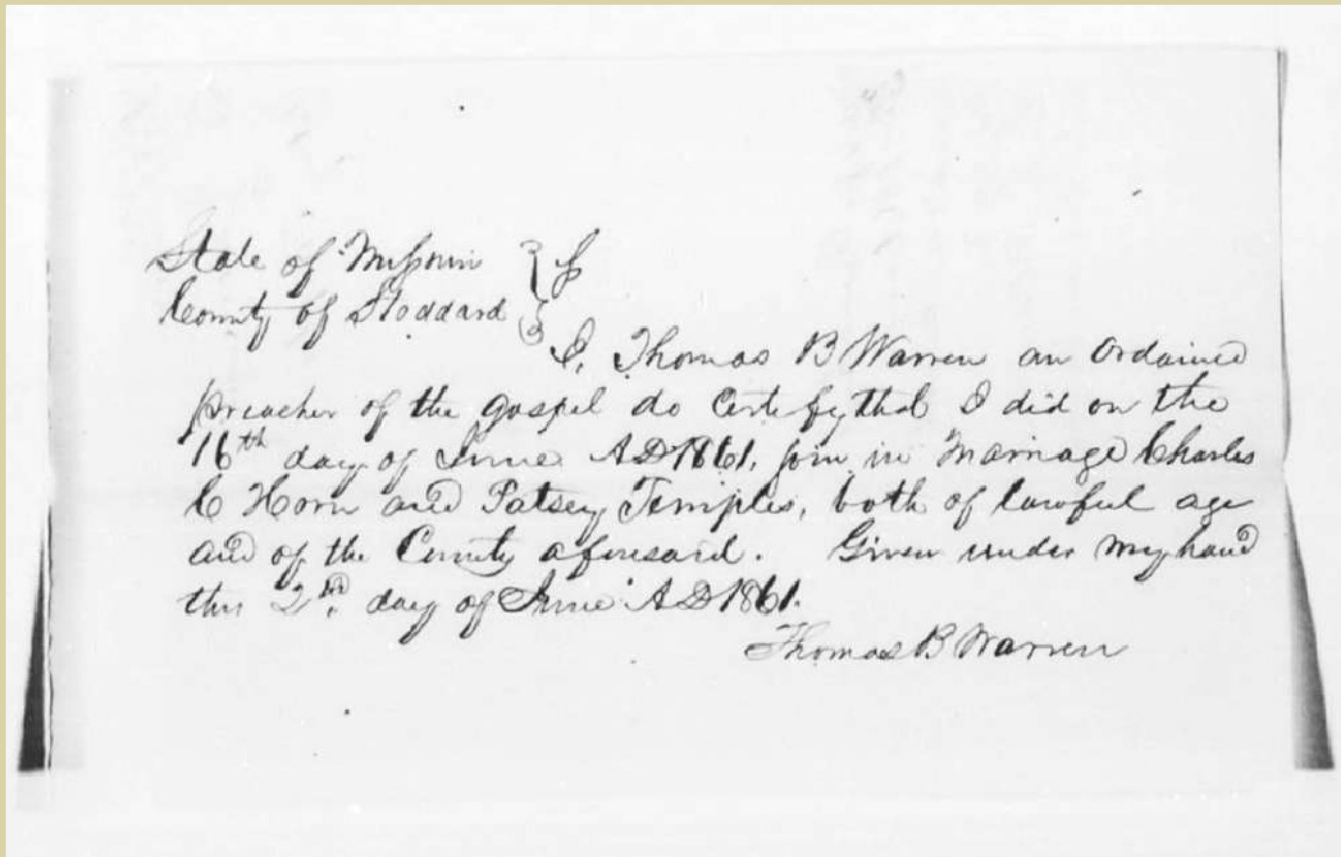 State of Missouri } ss
County of Stoddard }
I, Thomas B Warren an Ordained
preacher of the gospel do Certify that I did on the
16th day of June AD 1861, join in Marriage Charles
C Horn and Patsey Temples, both of lawful age
and of the County aforesaid. Given under my hand
this 2nd day of June AD 1861.
Thomas B Warren